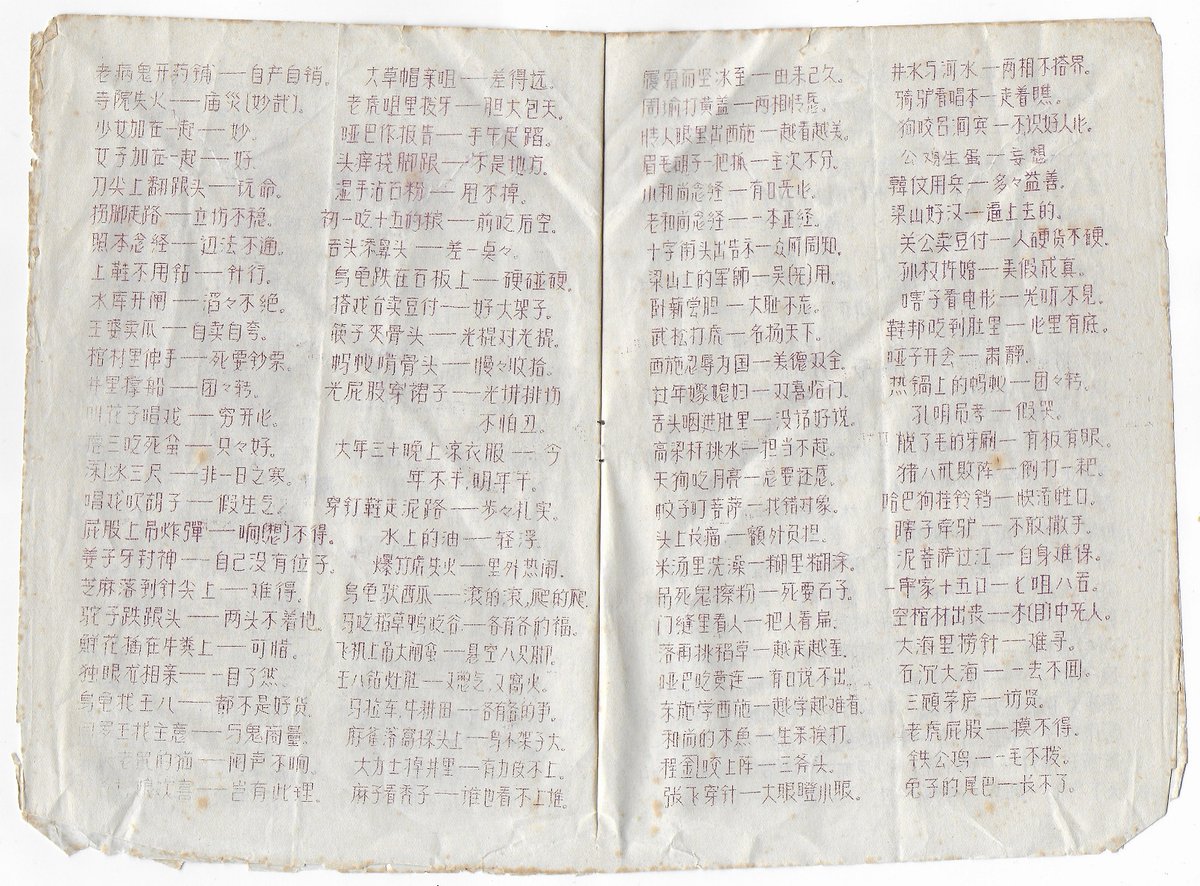 老病鬼开药铺——自产自销。
寺院失火——庙災(妙哉)。
少女加在一起——妙。
女子加在一起——好。
刀尖上翻跟头——玩命。
拐脚走路——立场不稳。
照本念经——边法不通。
上鞋不用钻——针行。
水库开闸——滔々不绝。
王婆卖瓜——自卖自夸。
棺材里伸手——死要钞票。
井里撑船——团々转。
叫花子唱戏——穷开心。
瘪三吃死蟹——只々好。
冰冻三尺——非一日之寒。
唱戏吹胡子——假生气。
屁股上吊炸彈——响(想)不得。
姜子牙封神——自己没有位子。
芝麻落到针尖上——难得。
驼子跌跟头——两头不着地。
鲜花插在牛粪上——可腊。
独眼龙相亲——一目了然。
乌龟找王八——都不是好货。
罗王找主意——与鬼商量。
老鼠的猫——闷声不响。
岂有此理。
大草帽亲咀——差得远。
老虎咀里拔牙——胆大包天。
哑巴作报告——手午足蹈。
头痒挠脚跟——不是地方。
湿手沾石粉——甩不掉。
初一吃十五的粮——前吃后空。
舌头添鼻头——差一点々。
乌龟跌在石板上——硬碰硬。
搭戏台卖豆付——好大架子。
筷子夹骨头——光棍对光棍。
蚂蚁啃骨头——慢々收拾。
光屁股穿裙子——光拼排场
不怕丑。
大年三十晚上凉衣服——今
年不干,明年干。
穿钉鞋走泥路——步々札实。
水上的油——轻浮。
爆竹店失火——里外热闹。
乌龟驮西瓜——滚的滚,爬的爬。
马吃稻草鸭吃谷——各有各的福。
飞机上吊大闸蟹——悬空八只脚。
王八钻灶肚——又憋气,又窝火。
马拉车,牛耕田——各有各的事。
麻雀落窝探头上——鸟不架子大。
大力士掉井里——有力使不上。
麻子看秃子——谁也看不上谁。
履霜而坚冰至——由来己久。
周瑜打黄盖——两相情愿。
情人眼里出西施——越看越美。
眉毛胡子一把抓——主次不分。
小和尚念经——有口无心。
老和尚念经——一本正经。
十字街头出告示——众所周知。
梁山上的军師——吴(无)用。
卧薪尝胆——大耻不忘。
武松打虎——名扬天下。
西施忍辱为国——美德双全。
过年嫁媳妇——双喜临门。
舌头咽进肚里——没话好说。
高梁杆挑水——担当不起。
天狗吃月亮——总要还愿。
蚊子叮菩萨——找错对象。
头上长瘤——额外负担。
米汤里洗澡——糊里糊涂。
吊死鬼擦粉——死要面子。
门缝里看人——把人看扁。
落雨挑稻草——越走越重。
哑巴吃黄连——有口说不出。
东施学西施——越学越难看。
和尚的木魚——生来挨打。
程金咬上阵——三斧头。
张飞穿针——大眼瞪小眼。
井水与河水——两相不搭界。
骑驴看唱本——走着瞧。
狗咬吕洞宾——不识好人心。
公鸡生蛋——妄想。
韓仅用兵——多々益善。
梁山好汉——逼上去的。
关公卖豆付——人硬货不硬。
孙权许婚——弄假成真。
瞎子看电影——光听不见。
鞋邦吃到肚里——心里有底。
哑子开会——肃靜。
热锅上的蚂蚁——团々转。
孔明吊孝——假哭。
脱了毛的牙刷——有板有眼。
猪八戒败阵——倒打一耙。
哈巴狗挂铃铛——快活牲口。
瞎子牵驴——不敢撒手。
泥菩萨过江——自身难保。
一家十五口——七咀八舌。
空棺材出丧——木(目)中无人。
大海里捞针——难寻。
石沉大海——一去不回。
三顾茅庐——访贤。
老虎屁股——摸不得。
铁公鸡——一毛不拨。
兔子的尾巴——长不了。